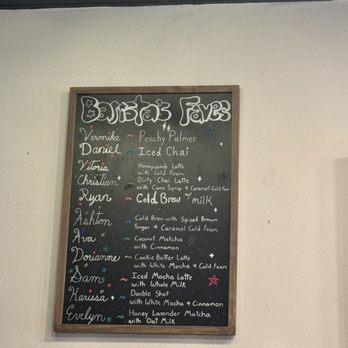 Baristas Faves
Veronika ~ Peachy Palmer
Daniel ~ Iced Chai
Vitoria ~ Honeycomb Latte
with Cold Foam
Christian ~ Dirty Chai Latte
with Cane Syrup + Caramel Cold Foam
Ryan ~ Cold Brew w/ milk
Ashton ~ Cold Brew with Spiced Brown
Sugar & Caramel Cold Foam
Ava ~ Coconut Matcha
with Cinnamon
Dorianne ~ Cookie Butter Latte
with White Mocha & Cold Foam
Sam ~ Iced Mocha Latte
with Whole Milk
Karissa ~ Double Shot
with White Mocha & Cinnamon
Evelyn ~ Honey Lavender Matcha
with Oat Milk